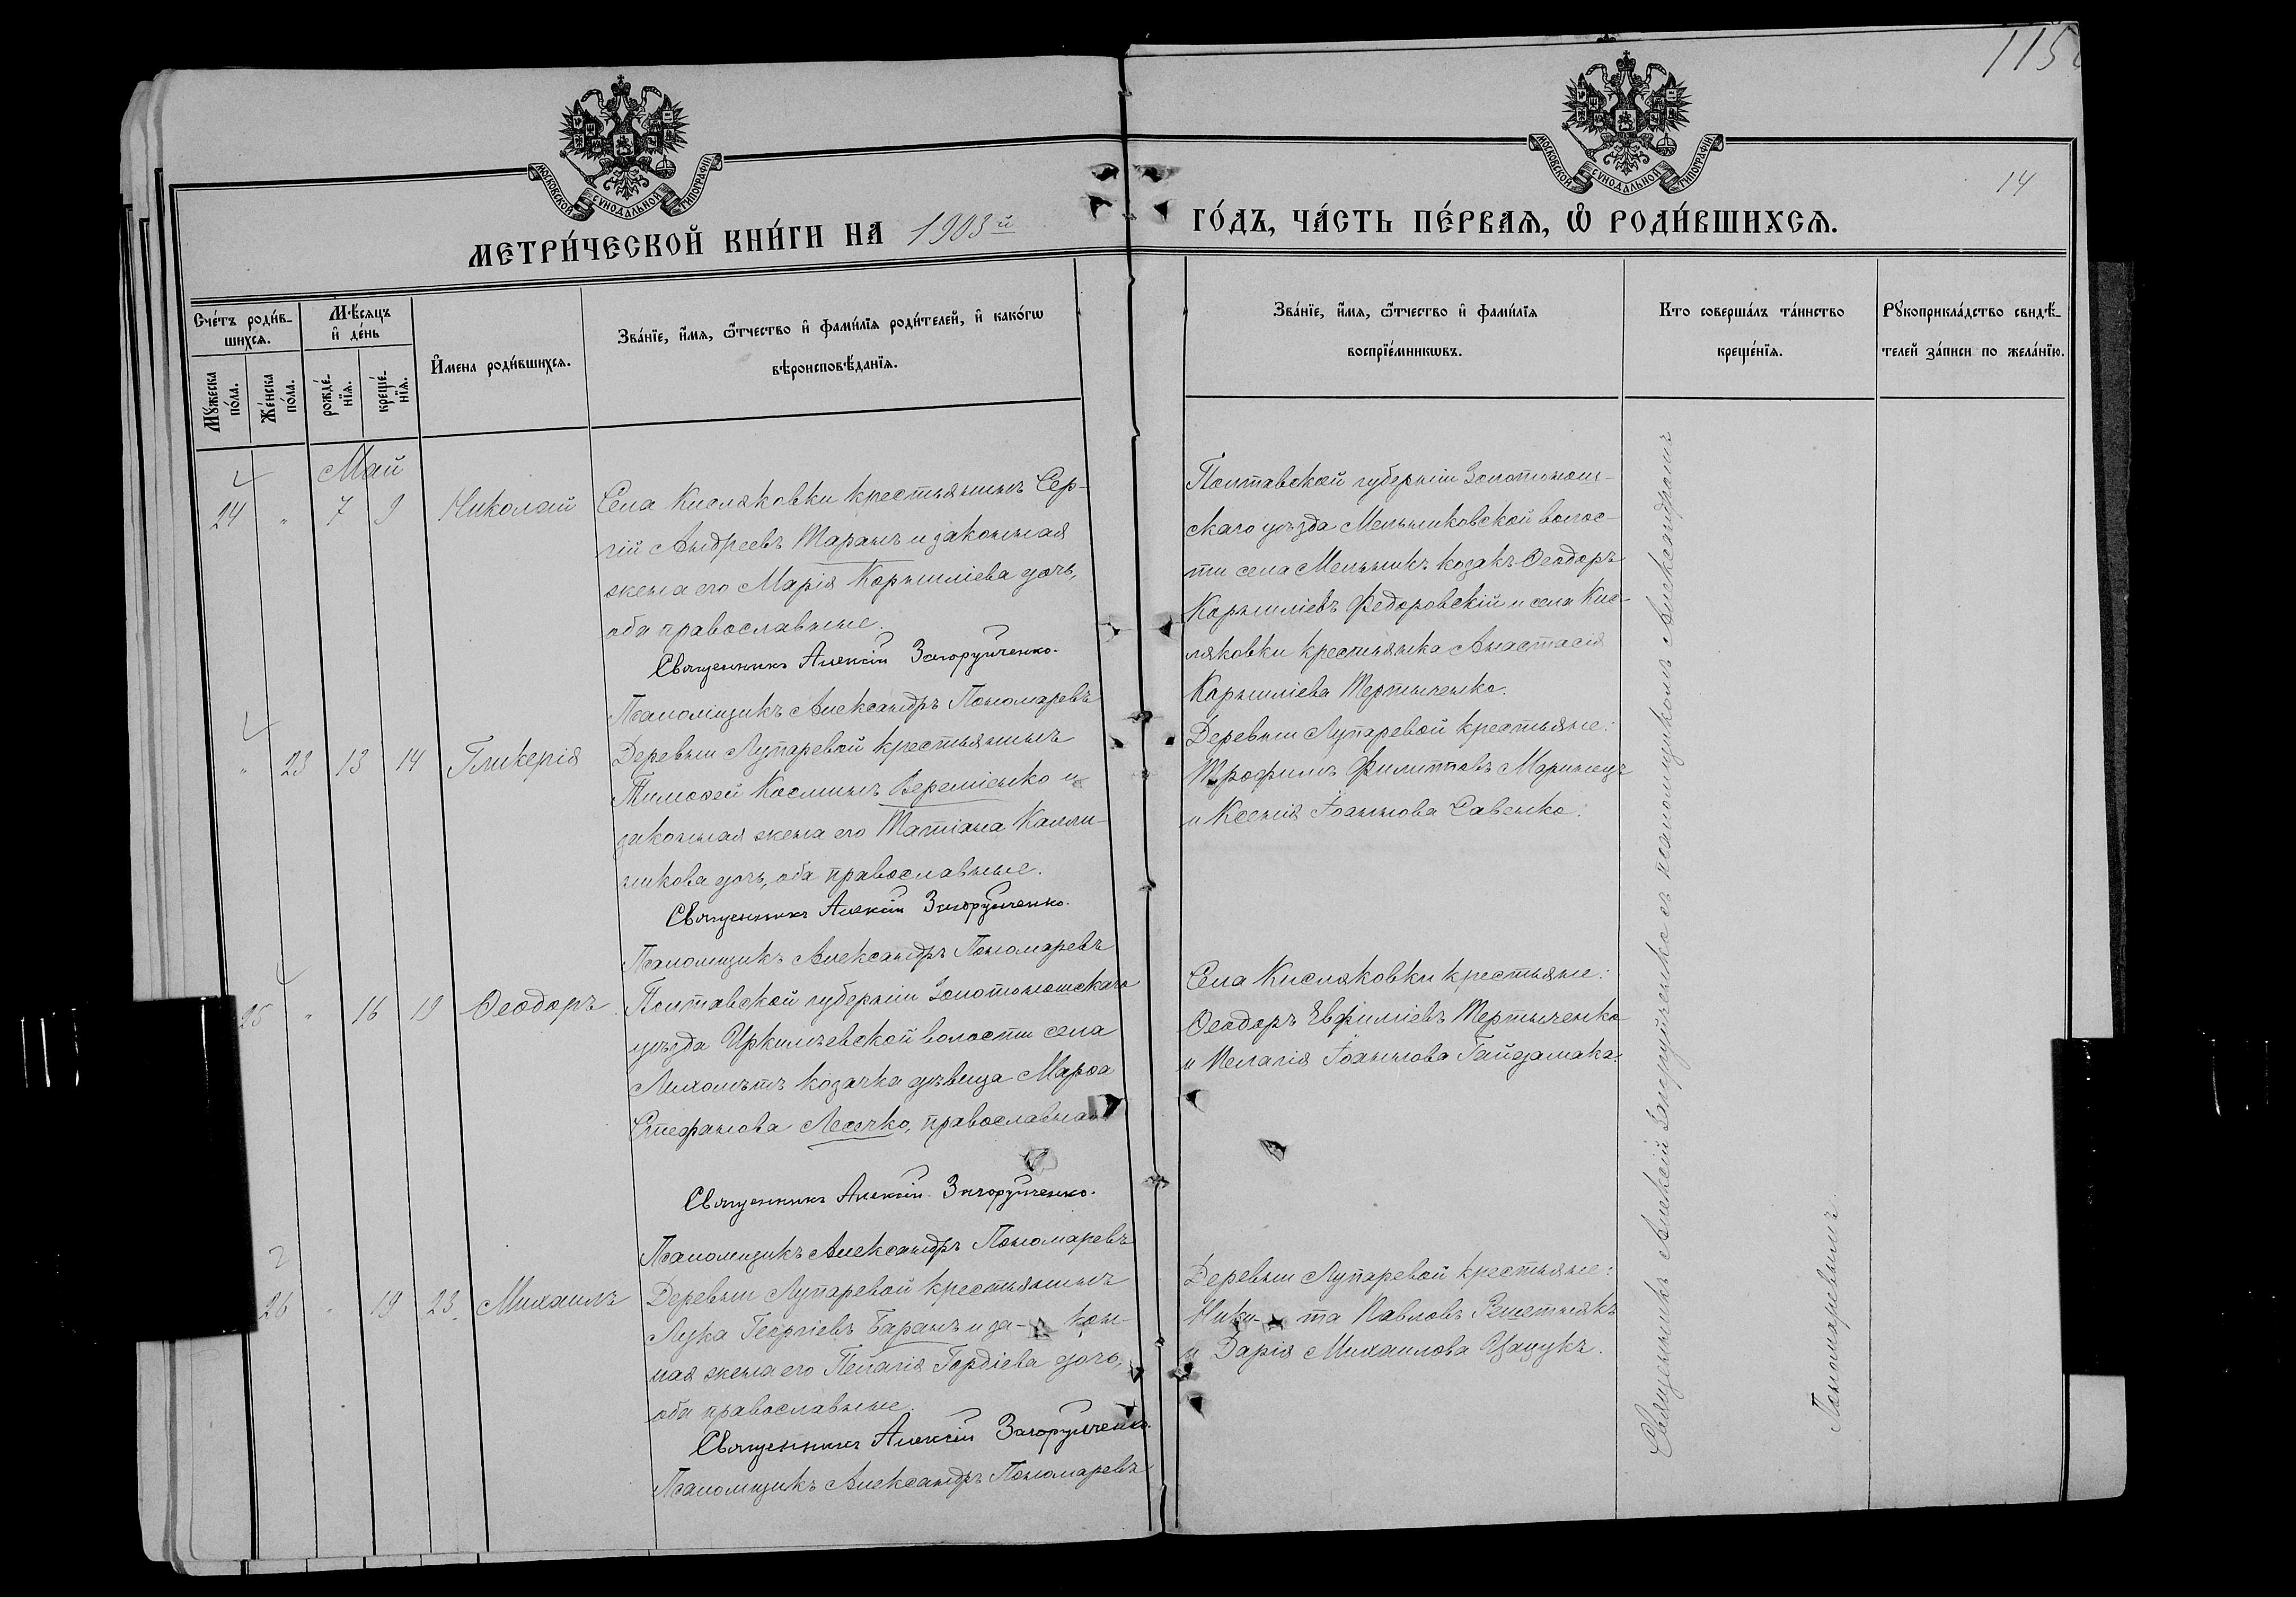 115
14
МОСКОВСКОЙ СѴНОДАЛЬНОЙ ТИПОГРАФІИ
МОСКОВСКОЙ СѴНОДАЛЬНОЙ ТИПОГРАФІИ
МЕТРИ́ЧЕСКОЙ КНИ́ГИ НА 1903й
ГО́ДЪ, ЧА́СТЬ ПЕ́РВАѦ, Ѽ РОДИ́ВШИХСѦ.
Сче́тъ роди́в-
шихсѧ.
Мꙋ́жеска
по́ла.
Же́нска
по́ла.
Мѣ́сѧцъ
и҆ де́нь
рожде́-
нїѧ.
креще́-
нїѧ.
И҆мена̀ роди́вшихсѧ.
Зва́нїе, и҆́мѧ, ѻ҆́тчество и҆ фами́лїѧ роди́телей, и҆ како́гѡ
вѣроисповѣ́данїѧ.
Зва́нїе, и҆́мѧ, ѻ҆́тчество и҆ фами́лїѧ
воспрїе́мникѡвъ.
Кто̀ соверша́лъ та́инство
креще́нїѧ.
Рꙋкоприкла́дство свидѣ́-
телей за́писи по жела́нїю.
Май
24 " 7 9 Николай
Села Кисляковки крестьянинъ Сер-
гій Андреевъ Таранъ и законная
жена его Марія Корниліева дочь,
оба православные.
Священникъ Алексій Загоруйченко.
Псаломщикъ Александръ Пономаревъ
Полтавской губерніи Золотонош-
скаго уѣзда Мельниковской волос-
ти села Мельникъ козакъ Ѳеодоръ
Корниліевъ Федоровскій и села Кис-
ляковки крестьянка Анастасія
Корниліева Тертыченко.
" 23 13 14 Гликерія
Деревни Лупаревой крестьянинъ
Тимоѳей Косминъ Вереміенко и
законная жена его Татіана Калли-
никова дочь, оба православные.
Священникъ Алексій Загоруйченко.
Псаломщикъ Александръ Пономаревъ
Деревни Лупаревой крестьяне:
Трофимъ Филипповъ Маринецъ
и Ксенія Іоаннова Савенко.
25 " 16 19 Ѳеодоръ
Полтавской губерніи Золотоношскаго
уѣзда Иркліевской волости села
Лихолѣтъ козачка дѣвица Марѳа
Стефанова Лесечко, православная
Священникъ Алексій Загоруйченко.
Псаломщикъ Александръ Пономаревъ
Села Кисляковки крестьяне:
Ѳеодоръ Евфиміевъ Тертыченко
и Пелагія Іоаннова Гайдамака.
26 " 19 23 Михаилъ
Деревни Лупаревой крестьянинъ
Лука Георгіевъ Баранъ и за- кон-
ная жена его Пелагія Гордіева дочь,
оба православные.
Священникъ Алексій Загоруйченко.
Псаломщикъ Александръ Пономаревъ
Деревни Лупаревой крестьяне:
Ники- та Павловъ Решетнякъ
и Дарія Михаилова Цацукъ.
Священникъ Алексій Загоруйченко съ псаломщикомъ Александромъ
Пономаревымъ.